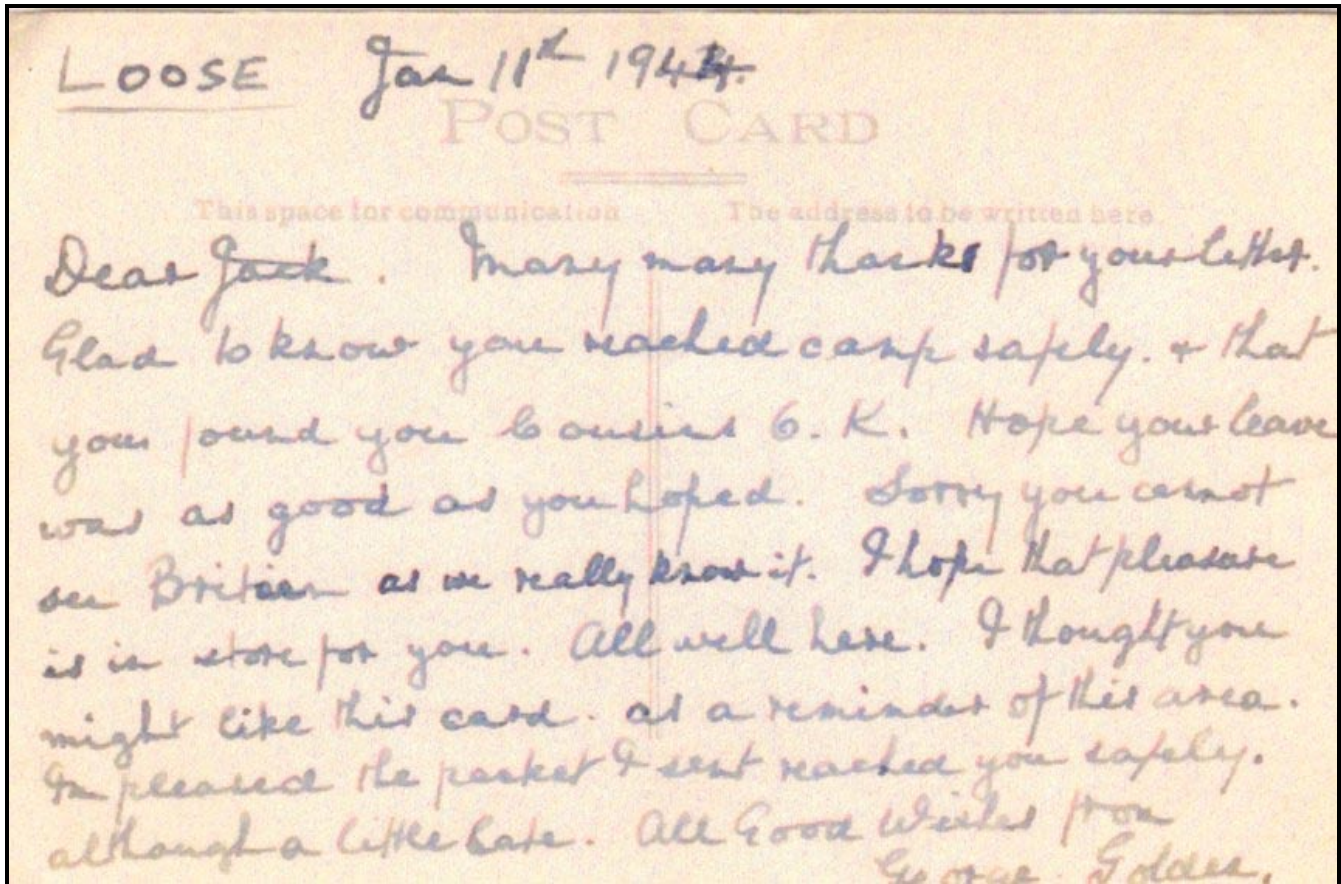 LOOSE Jan 11th 1944.
POST CARD
This space for communication The address to be written here
Dear Jack. Many many thanks for your letter.
Glad to know you reached camp safely. & that
you found you Cousins O.K. Hope your leave
was as good as you hoped. Sorry you cannot
see Britain as we really know it. I hope that pleasure
is in store for you. All well here. I thought you
might like this card. as a reminder of this area.
Im pleased the packet I sent reached you safely.
although a little late. All Good Wishes from
George